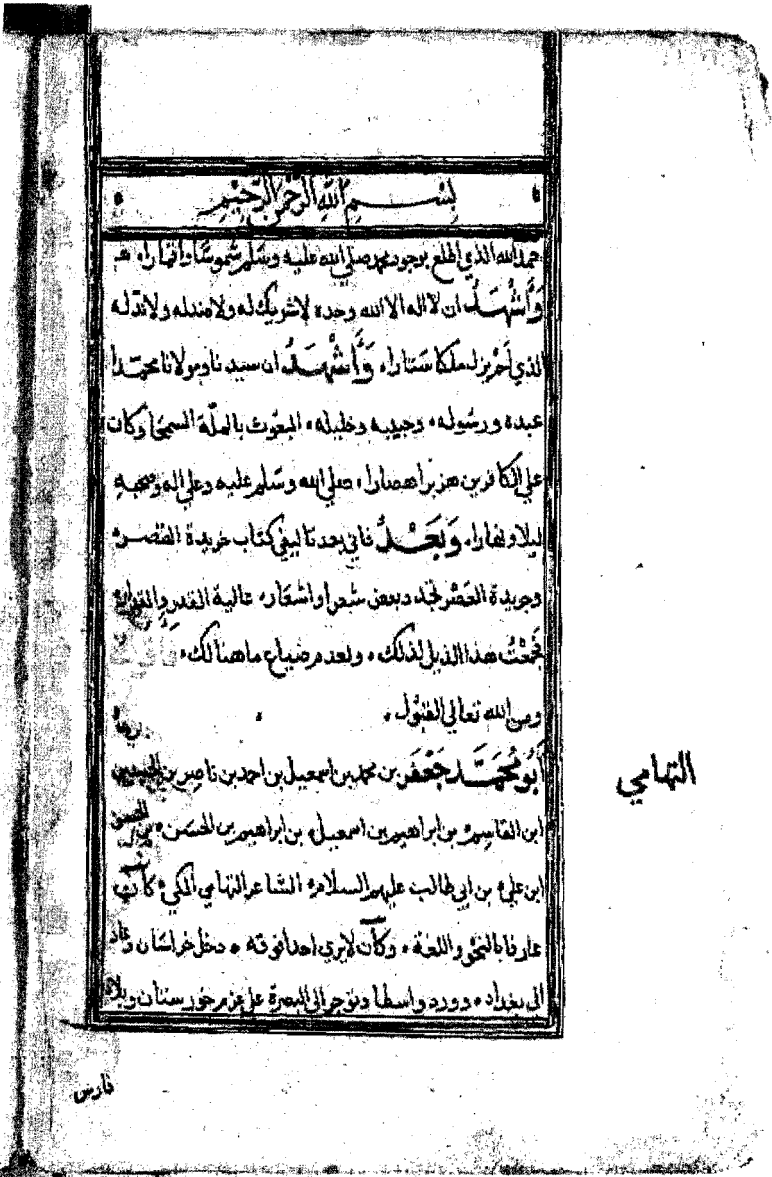 بسم الله الرحمن الرحيم
حمد الله الذي اطلع بوجود محمد صلي الله عليه وسلم شموسا واقمارا،
وَأَشْهَدُ ان لا اله الا الله وحده لا شريك له ولا ضد له ولا ند له
الذي لم يزل ملكا ستارا، وَأَشْهَدُ ان سيدنا ومولانا محمدا
عبده ورسوله، وحبيبه وخليله، المبعوث بالملة السمحا وكان
علي الكافرين هزبرا هصارا، صلي الله وسلم عليه وعلي اله وصحبه
ليلا ونهارا، وَبَعْدُ فاني بعد تاليفي كتاب خريدة القصر
وجريدة العصر لم اجد بعض شعرا واشعار، عالية القدر
فجمعت هذا الذيل لذلك، ولعدم ضياع ما هنالك،
ومن الله تعالي القبول،
أَبُو مُحَمَّد جَعْفَر بن محمد بن اسمعيل بن احمد بن ناصر بن
التهامي
ابن القاسم بن ابراهيم بن اسمعيل، بن ابراهيم بن الحسن، بن الحسن
ابن علي بن ابي طالب عليهم السلام الشاعر التهامي المكي، كان
عارفا بالنحو واللغة، وكان لا يري احدا فوقه، دخل خراسان وعاد
الي بغداد، وورد واسطا وتوجه الي البصرة علي عزم خورستان وبلاد
فارس